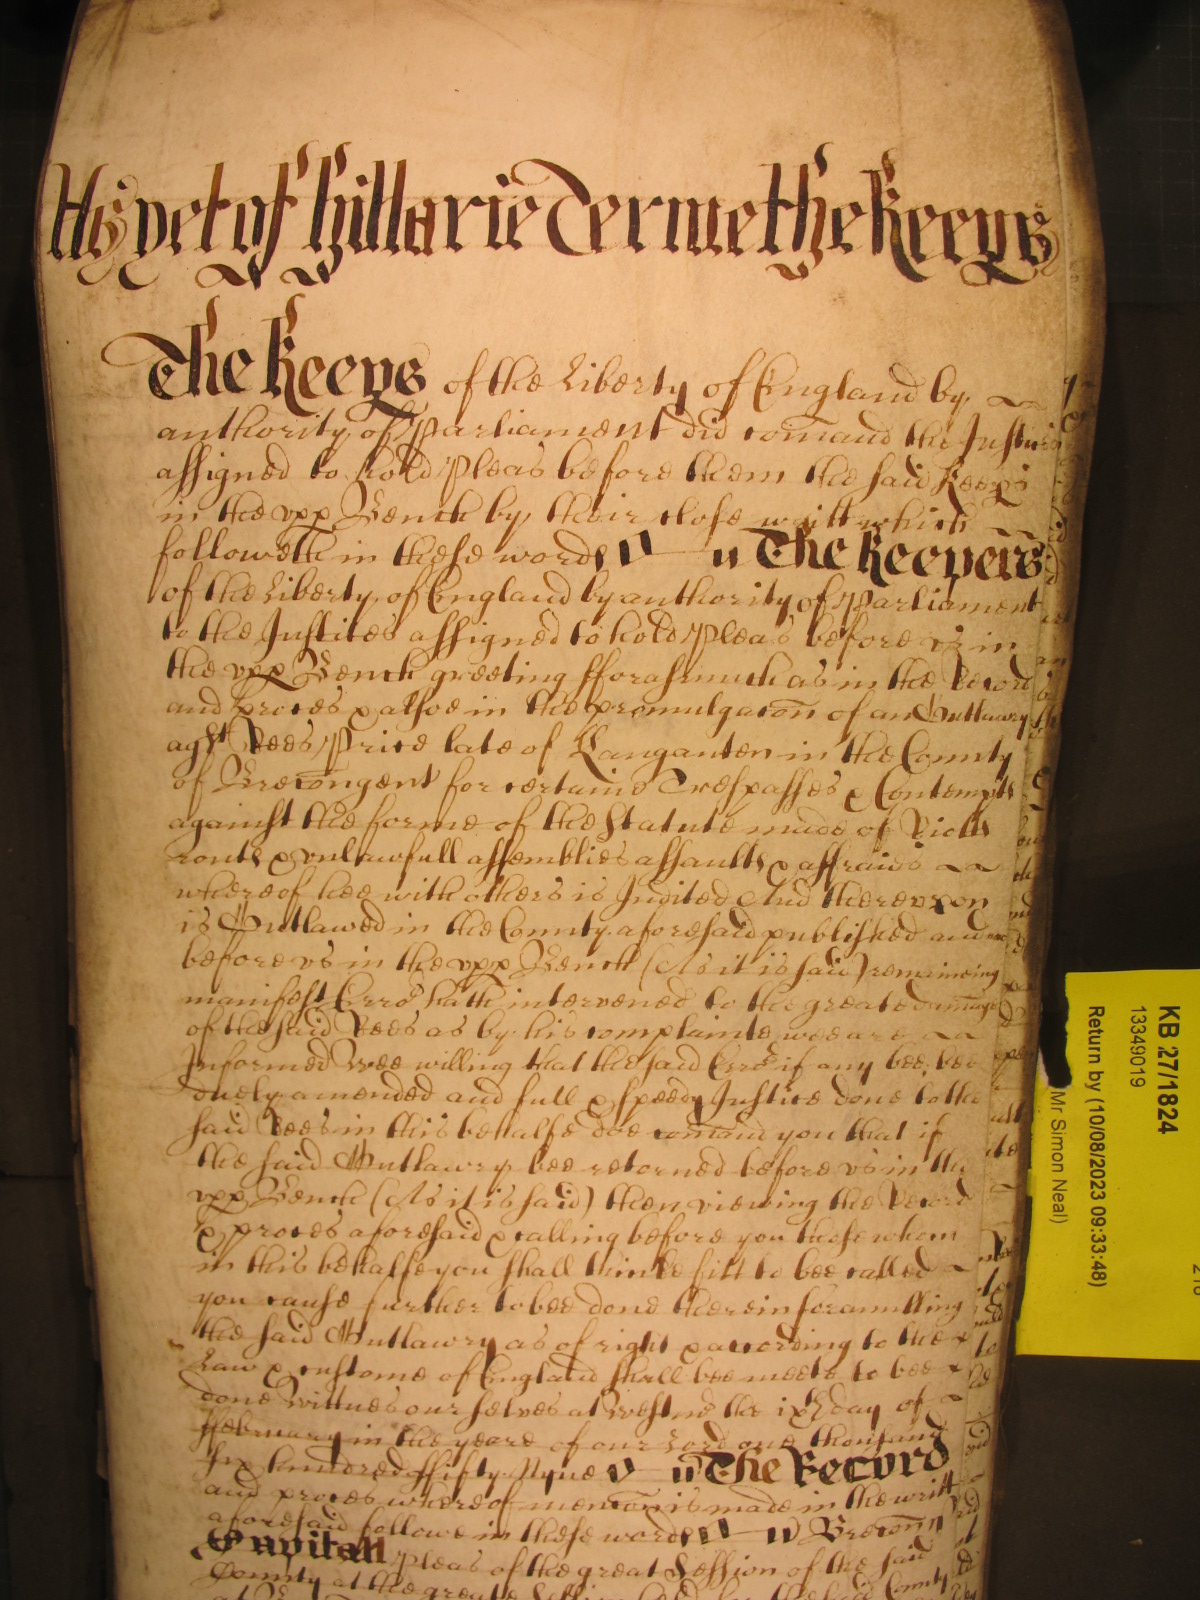 As yet of Hillarie Terme the Keeps
The Keeps of the Liberty of England by
authority of Parliament did comaund the Justices
assigned to hold Pleas before them the said Keeps
in the vpp Bench by their close writt which
followeth in these words The Keepers
of the Liberty of England by authority of Parliament
to the Justices assigned to hold Pleas before vs in
the vpp Bench greeting fforasmuch as in the Record
and proces & alsoe in the promulgacon of an Outlawry
agst Rees Price late of Llanganten in the County
of Brecon gent for certaine Trespasses & Contempts
against the forme of the Statute made of Riotts
routs & vnlawfull assemblies assaults & affraies
whereof hee with others is Indited And therevpon
is Outlawed in the County aforesaid published and
before vs in the vpp Bench (As it is said) remaineing
manifest Error hath intervened to the greate damage
of the said Rees as by his complainte wee are
Informed Wee willing that the said Error if any bee, bee
duely amended and full & speedy Justice done to the
said Rees in this behalfe doe comaund you that if
the said Outlawry bee retorned before vs in the
vpp Bench (As it is said) then viewing the Record
& proces aforesaid & calling before you those whom
in this behalfe you shall thinke fitt to bee called
you cause further to bee done therein for anulling
the said Outlawry as of right & according to the
Law & custome of England shall bee meete to bee
done Wittnes our selves at Westmr the ixth day of
ffebruary in the yeare of our Lord one thousand
six hundred ffifty Nyne The Record
and proces whereof mencon is made in the writt
aforesaid followe in these words Brecon
Pleas of the great Session of the said
County at the greate Session held
KB 27/1824
13349019
Return by (10/08/2023 09:33:48)
Mr Simon Neal)